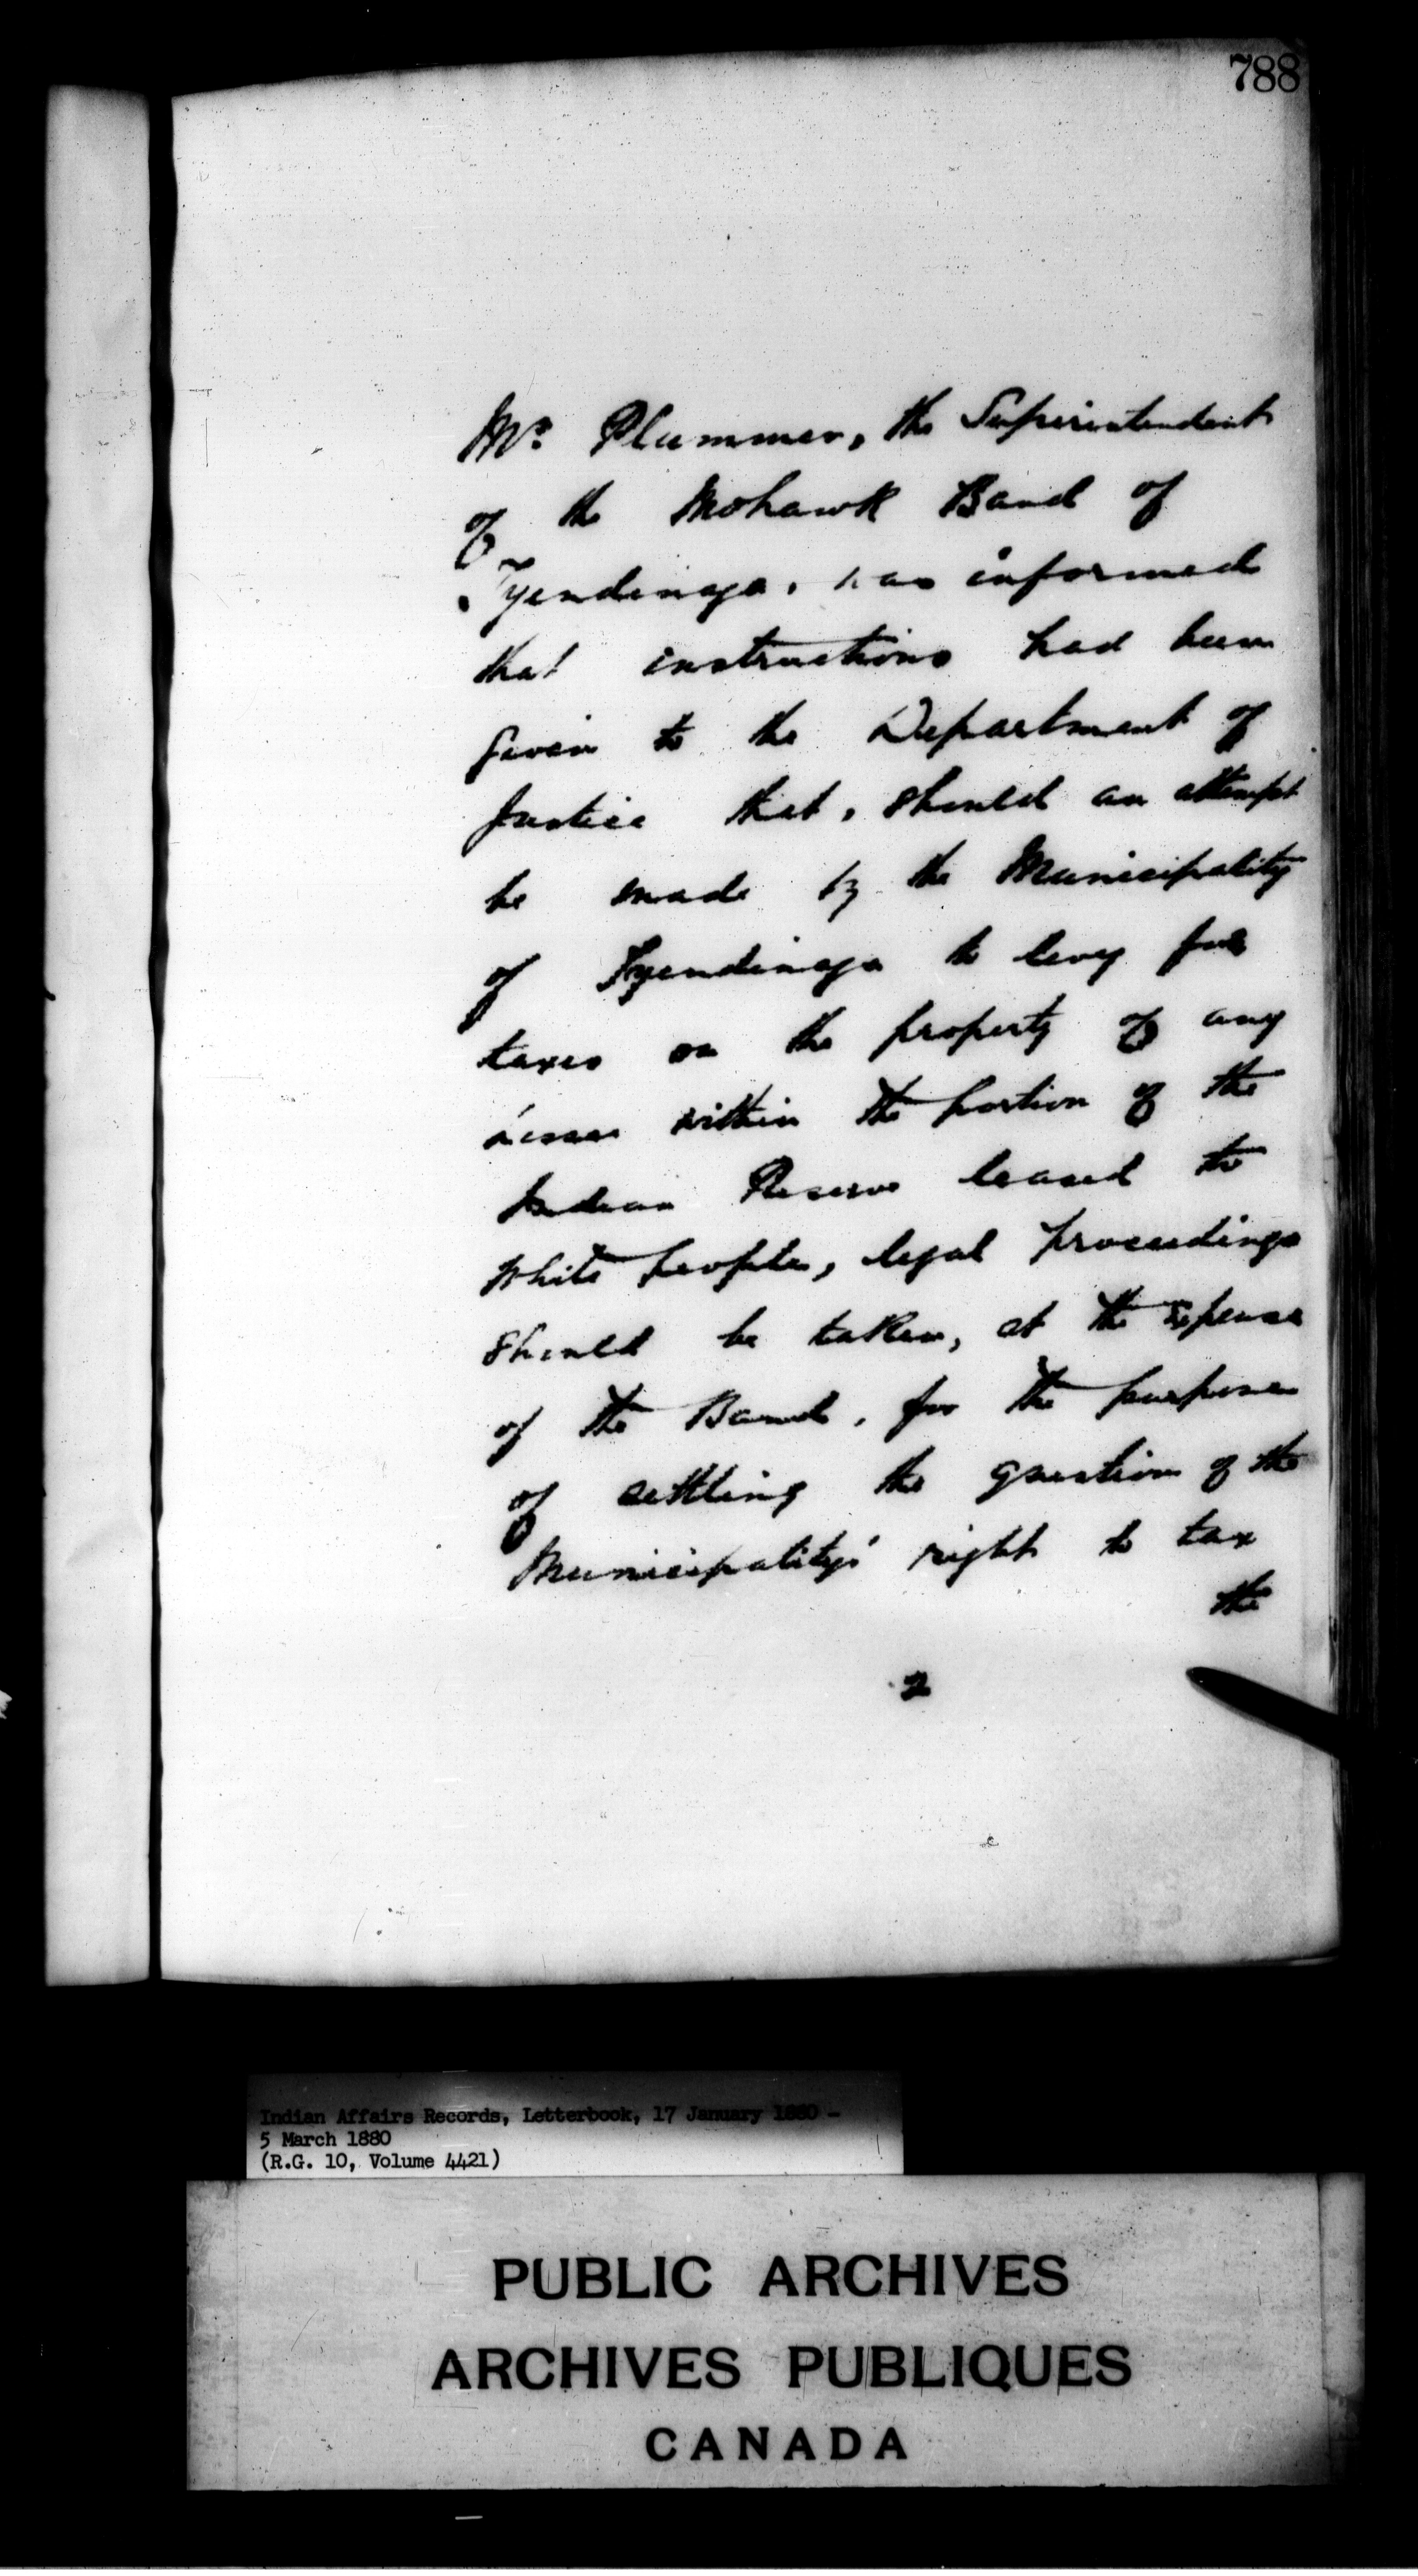 788
Mr. Plummer, the Superintendent
of the Mohawk Band of
Tyendinaga, was informed
that instructions had been
given to the Department of
Justice that, should an attempt
be made by the Municipality
of Tyendinaga to levy for
taxes on the property of any
lessee within the portion of the
Indian Reserve leased to
white people, legal proceedings
should be taken, at the expense
of the Band, for the purpose
of settling the question of the
Municipality's right to tax
the
2
Indian Affairs Records, Letterbook, 17 January 1880 -
5 March 1880
(R.G. 10, Volume 4421)
PUBLIC ARCHIVES
ARCHIVES PUBLIQUES
CANADA